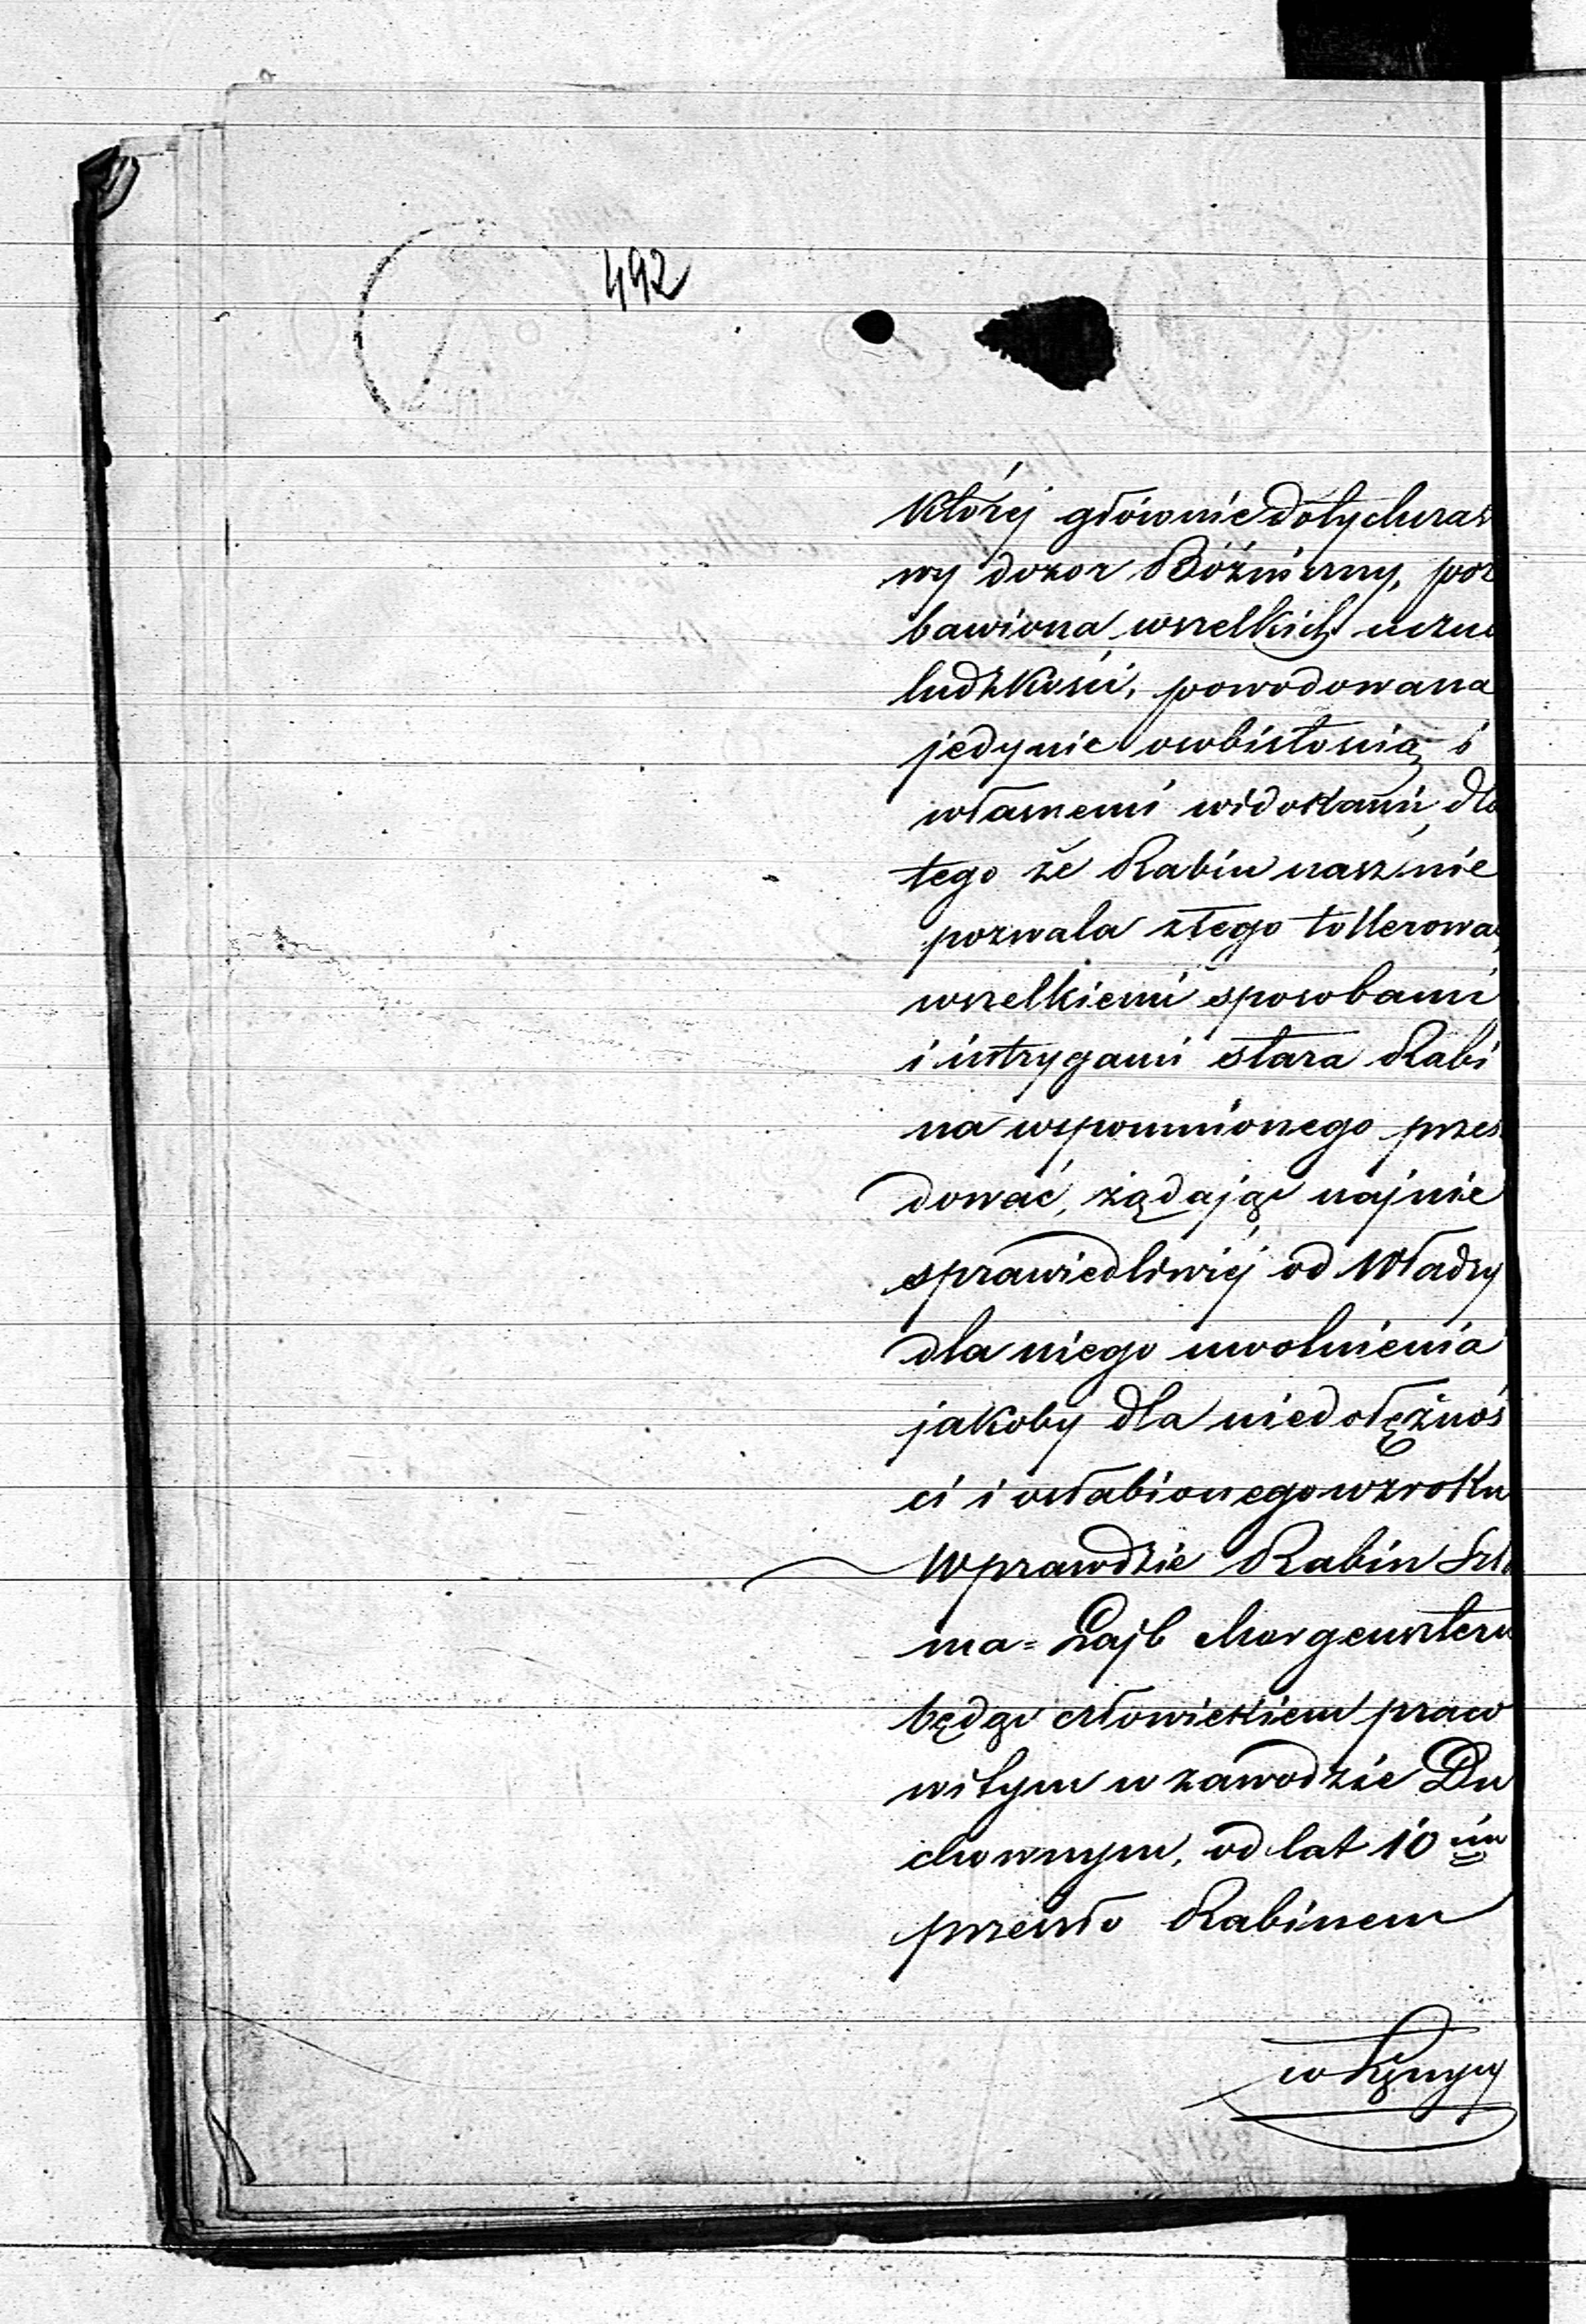 492
której głównie dotychczas
wy dozor Bóźniczny, poz
bawiona wszelkich uczu
ludzkości, powodowana
jedynie osobistością i
własnemi widokami, dla
tego że Rabin nasz nie
pozwala złego tollerować
wszelkiemi sposobami
i intrygami stara Rabi
na wspomnionego prześ
dować, żądając najnie
sprawiedliwiéj od Władzy
dla niego uwolnienia
jakoby dla niedołężnoś
ci i osłabionego wzroku
Wprawdzie Rabin Szlo
ma=Lajb Morgensztern
będąc człowiekiem praw
witym w zawodzie Du
chownym, od lat 10 ciu
przeszło Rabinem
w Łęczycy